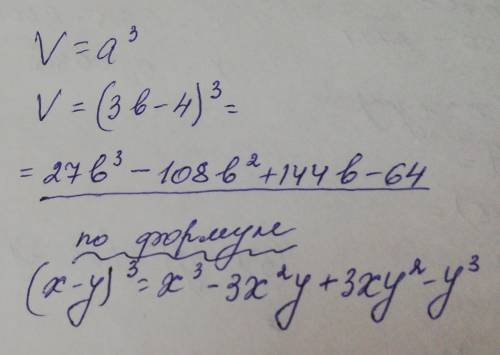 V = a³
V = (3в - 4)³ =
= 27в³ - 108в² + 144в - 64
по формуле
(x-y)³ = x³ - 3x²y + 3xy² - y³